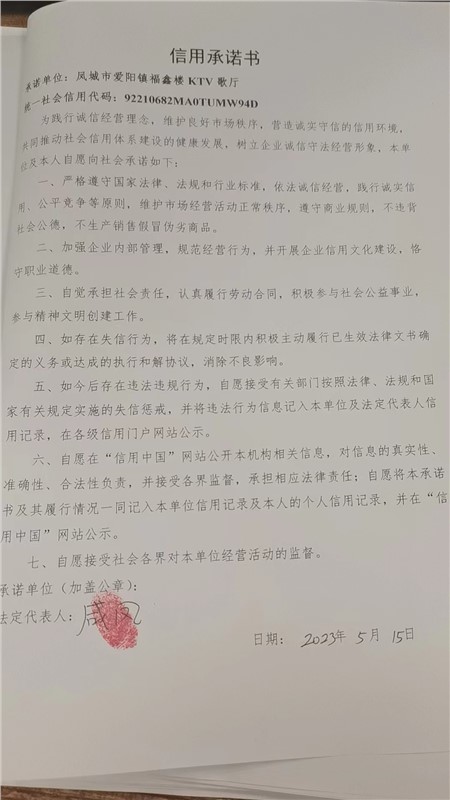 信用承诺书
承诺单位：凤城市爱阳镇福鑫楼 KTV 歌厅
统一社会信用代码：92210682MA0TUMW94D
为践行诚信经营理念，维护良好市场秩序，营造诚实守信的信用环境，
共同推动社会信用体系建设的健康发展，树立企业诚信守法经营形象，本单
位及本人自愿向社会承诺如下：
一、严格遵守国家法律、法规和行业标准，依法诚信经营，践行诚实信
用、公平竞争等原则，维护市场经营活动正常秩序，遵守商业规则，不违背
社会公德，不生产销售假冒伪劣商品。
二、加强企业内部管理，规范经营行为，并开展企业信用文化建设，恪
守职业道德。
三、自觉承担社会责任，认真履行劳动合同，积极参与社会公益事业，
参与精神文明创建工作。
四、如存在失信行为，将在规定时限内积极主动履行已生效法律文书确
定的义务或达成的执行和解协议，消除不良影响。
五、如今后存在违法违规行为，自愿接受有关部门按照法律、法规和国
家有关规定实施的失信惩戒，并将违法行为信息记入本单位及法定代表人信
用记录，在各级信用门户网站公示。
六、自愿在“信用中国”网站公开本机构相关信息，对信息的真实性、
准确性、合法性负责，并接受各界监督，承担相应法律责任；自愿将本承诺
书及其履行情况一同记入本单位信用记录及本人的个人信用记录，并在“信
用中国”网站公示。
七、自愿接受社会各界对本单位经营活动的监督。
承诺单位（加盖公章）：
法定代表人：
日期： 2023年 5 月 15日